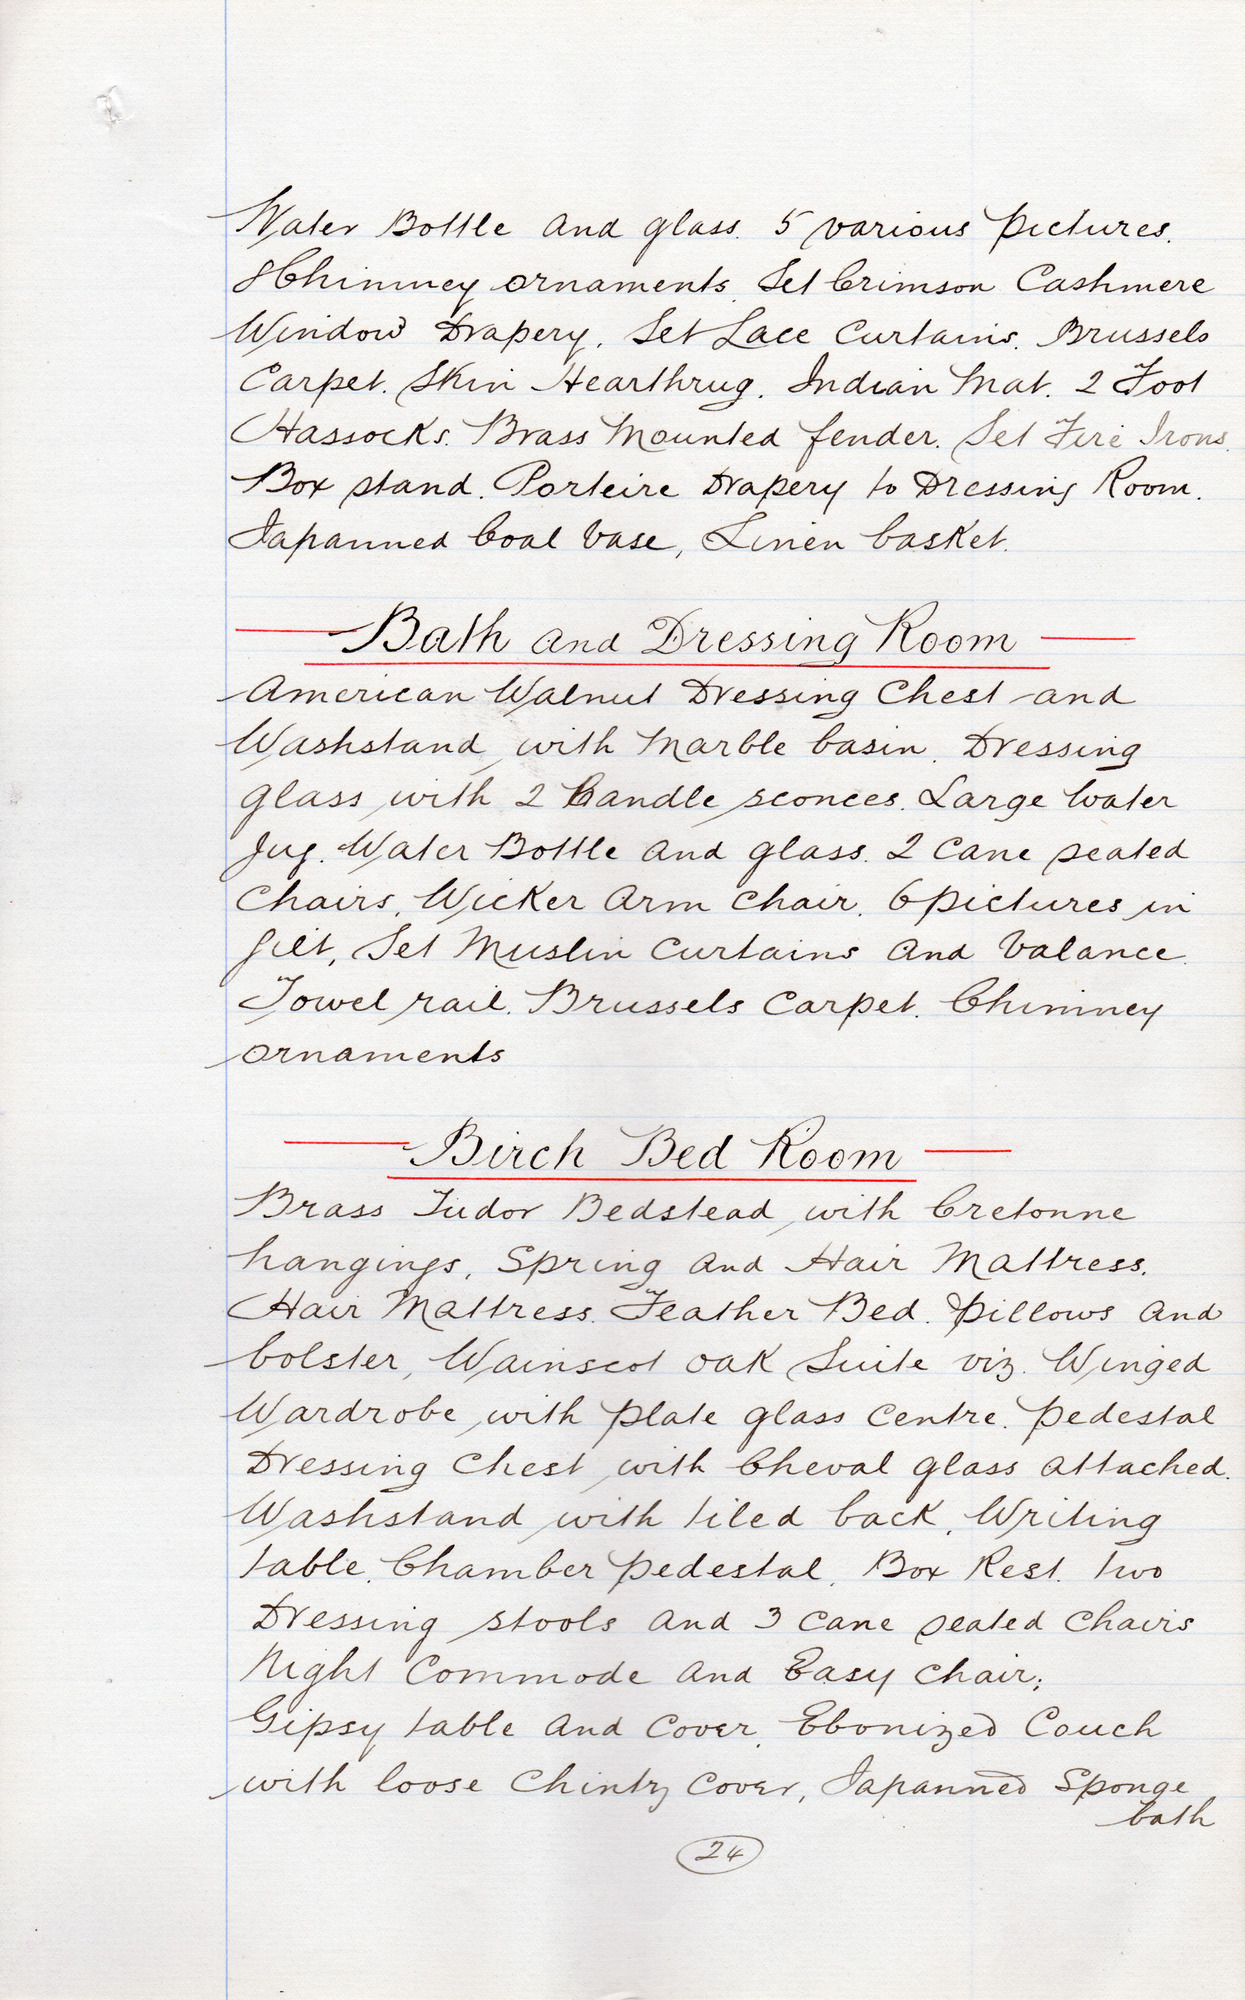 Water Bottle and glass. 5 various pictures.
8 Chimney ornaments. Set Crimson Cashmere
Window Drapery. Set Lace Curtains. Brussels
Carpet. Skin Hearthrug. Indian Mat. 2 Foot
Hassocks. Brass Mounted fender. Set Fire Irons.
Box stand. Porteire Drapery to Dressing Room.
Japanned Coal Vase, Linen basket.
Bath and Dressing Room
American Walnut Dressing Chest and
Washstand with Marble basin. Dressing
glass with 2 Candle sconces. Large Water
Jug. Water Bottle and glass. 2 Cane seated
Chairs. Wicker Arm Chair. 6 pictures in
gilt, Set Muslin Curtains and Valance.
Towel rail. Brussels Carpet. Chimney
ornaments
Birch Bed Room
Brass Tudor Bedstead with Cretonne
hangings. Spring and Hair Mattress.
Hair Mattress. Feather Bed. Pillows and
bolster, Wainscot oak Suite viz. Winged
Wardrobe with plate glass centre. Pedestal
Dressing Chest with Cheval glass attached.
Washstand with tiled back. Writing
table. Chamber pedestal. Box Rest. two
Dressing stools and 3 cane seated Chairs
Night Commode and Easy Chair;
Gipsy table and Cover. Ebonized Couch
with loose Chintz Cover, Japanned Sponge
bath
24